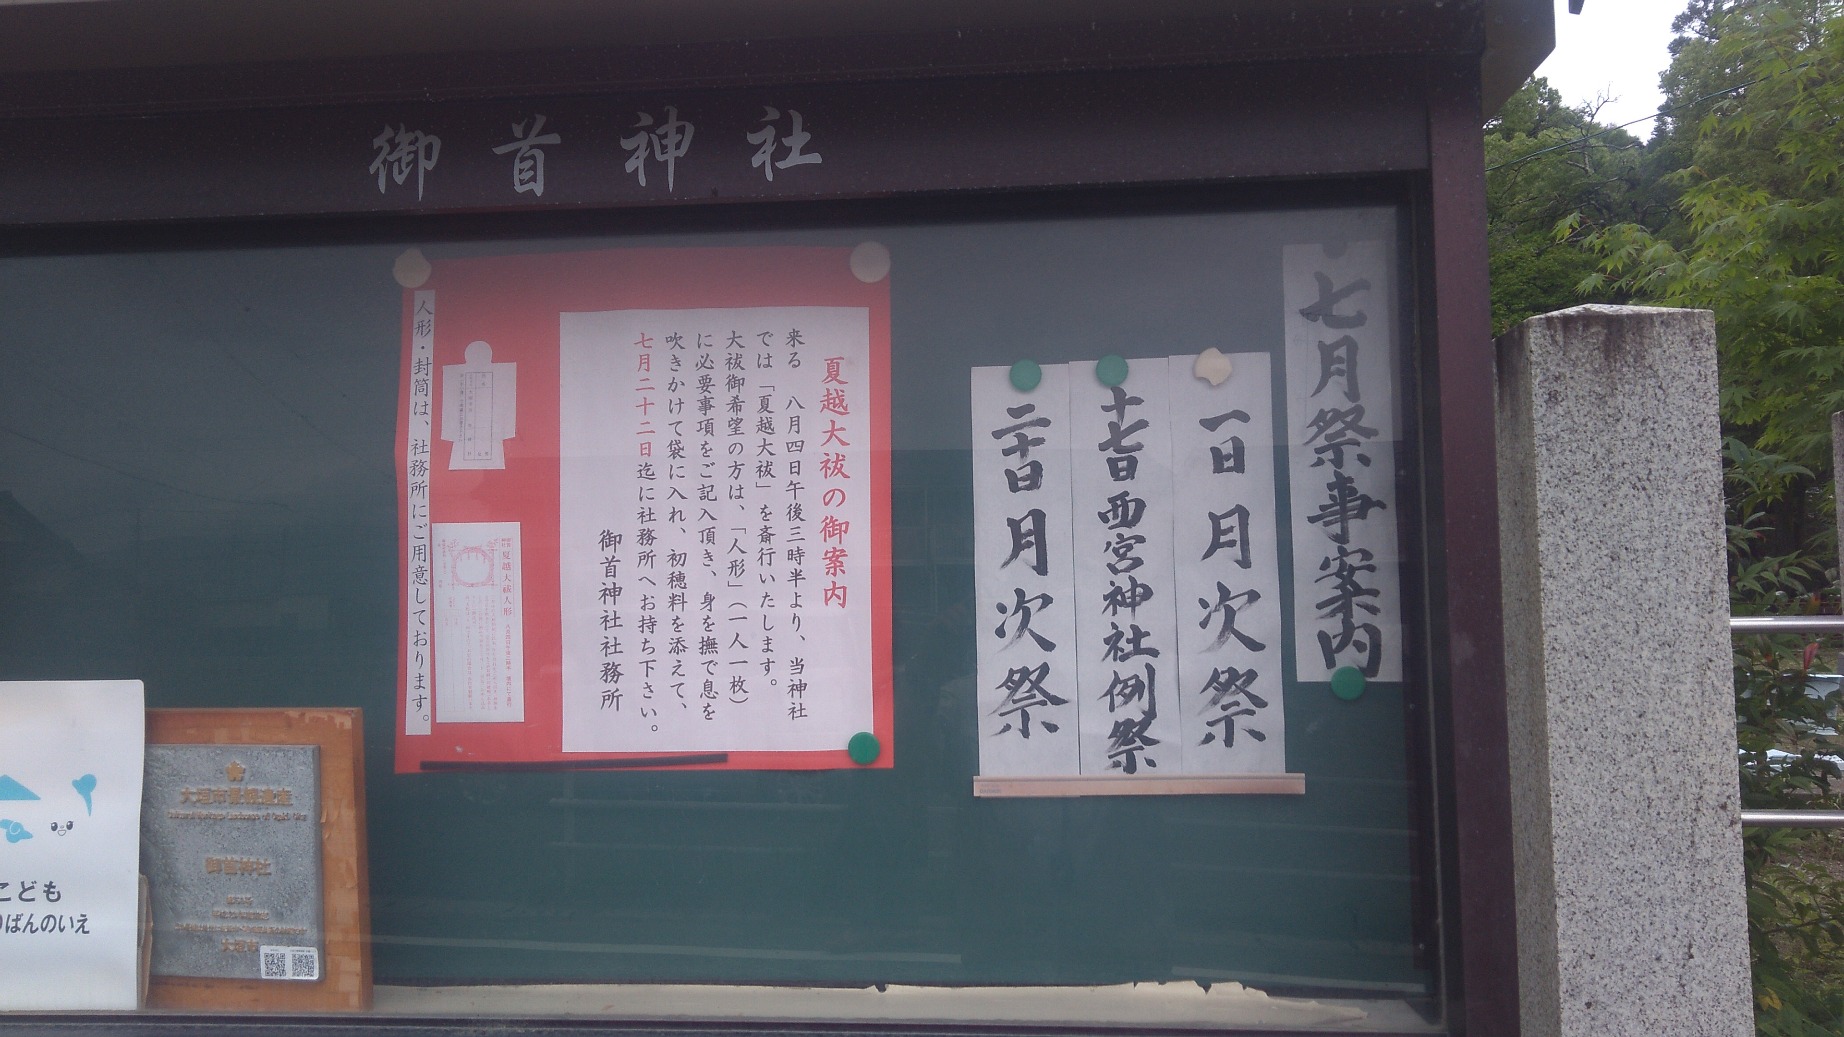 御首神社
七月祭事案内
一日 月次祭
十七日 西宮神社例祭
二十日 月次祭
夏越大祓の御案内
来る 八月四日午後三時半より、当神社
では「夏越大祓」を斎行いたします。
大祓御希望の方は、「人形」(一人一枚)
に必要事項をご記入頂き、身を撫で息を
吹きかけて袋に入れ、初穂料を添えて、
七月二十二日迄に社務所へお持ち下さい。
御首神社社務所
夏越大祓人形
人形・封筒は、社務所にご用意しております。
大垣市景観遺産
御首神社
大垣市
こども
ばんのいえ